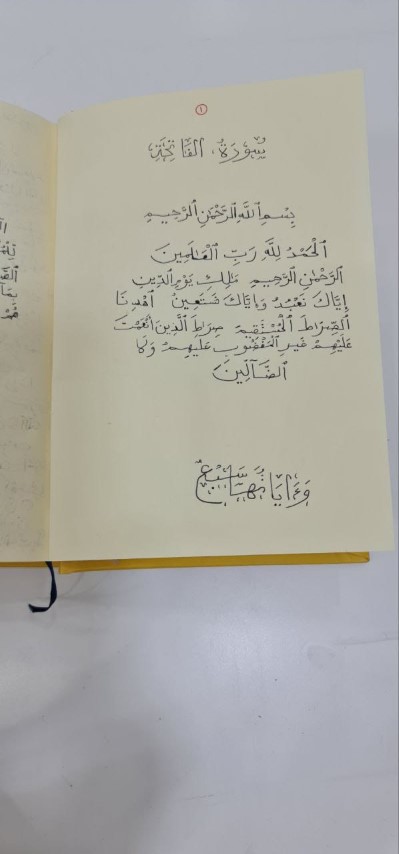 ١
سُورَةُ الفَاتِحَةِ
بِسْمِ اللَّهِ الرَّحْمَٰنِ الرَّحِيمِ
الْحَمْدُ لِلَّهِ رَبِّ الْعَالَمِينَ
الرَّحْمَٰنِ الرَّحِيمِ مَالِكِ يَوْمِ الدِّينِ
إِيَّاكَ نَعْبُدُ وَإِيَّاكَ نَسْتَعِينُ اهْدِنَا
الصِّرَاطَ الْمُسْتَقِيمَ صِرَاطَ الَّذِينَ أَنْعَمْتَ
عَلَيْهِمْ غَيْرِ الْمَغْضُوبِ عَلَيْهِمْ وَلَا
الضَّآلِّينَ
وَءَايَاتُهَا سَبْعٌ